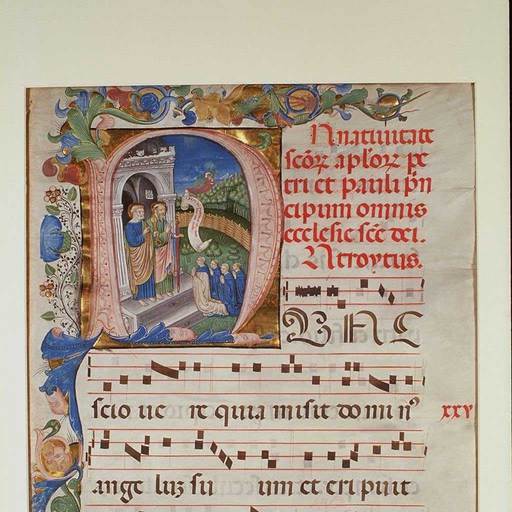 In natiuitate
scōꝝ aplōꝝ pe
tri et pauli pn
cipum omnis
ecclesie scē dei.
Introytus.
NUNC
scio ue re quia misit do mi nꝰ
xxv
ange luz su um et eri puit